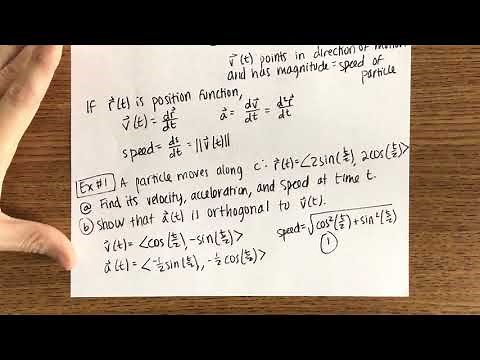 v⃗(t) points in direction of motion
and has magnitude = speed of
particle
If r⃗(t) is position function,
v⃗(t) = dr⃗/dt   a⃗ = dv⃗/dt = d²r⃗/dt²
speed = ds/dt = ||v⃗(t)||
Ex #1 A particle moves along c: r⃗(t) = <2sin(t/2), 2cos(t/2)>
ⓐ Find its velocity, acceleration, and speed at time t.
ⓑ Show that a⃗(t) is orthogonal to v⃗(t).
v⃗(t) = <cos(t/2), -sin(t/2)>   speed = √cos²(t/2) + sin²(t/2)
①
a⃗(t) = <-½ sin(t/2), -½ cos(t/2)>